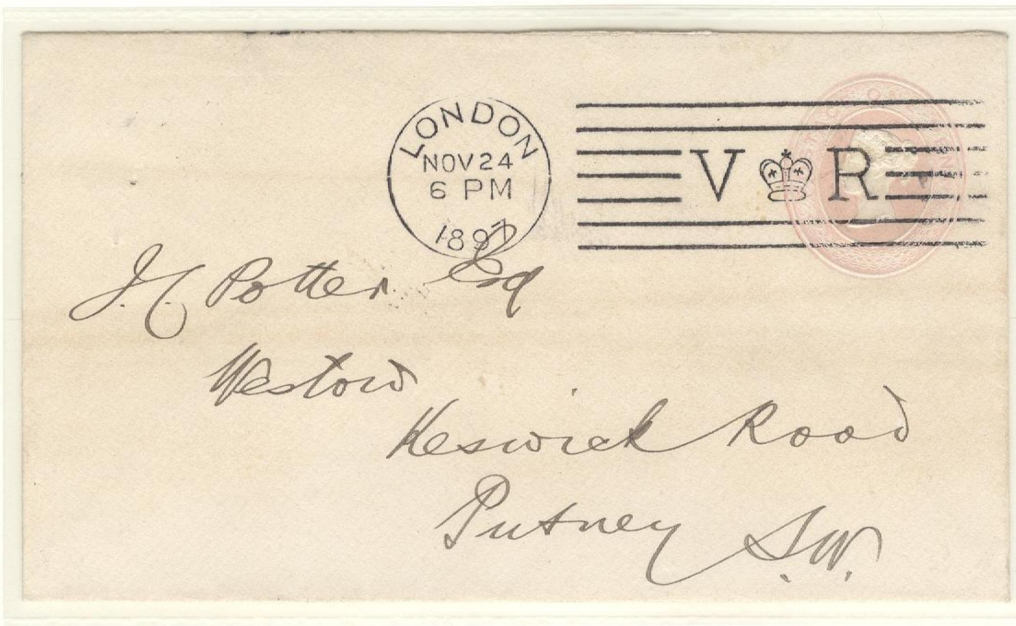 LONDON
NOV 24
6 PM
1897
V R
J. C. Potter Esq
Westow
Keswick Road
Putney
S.W.